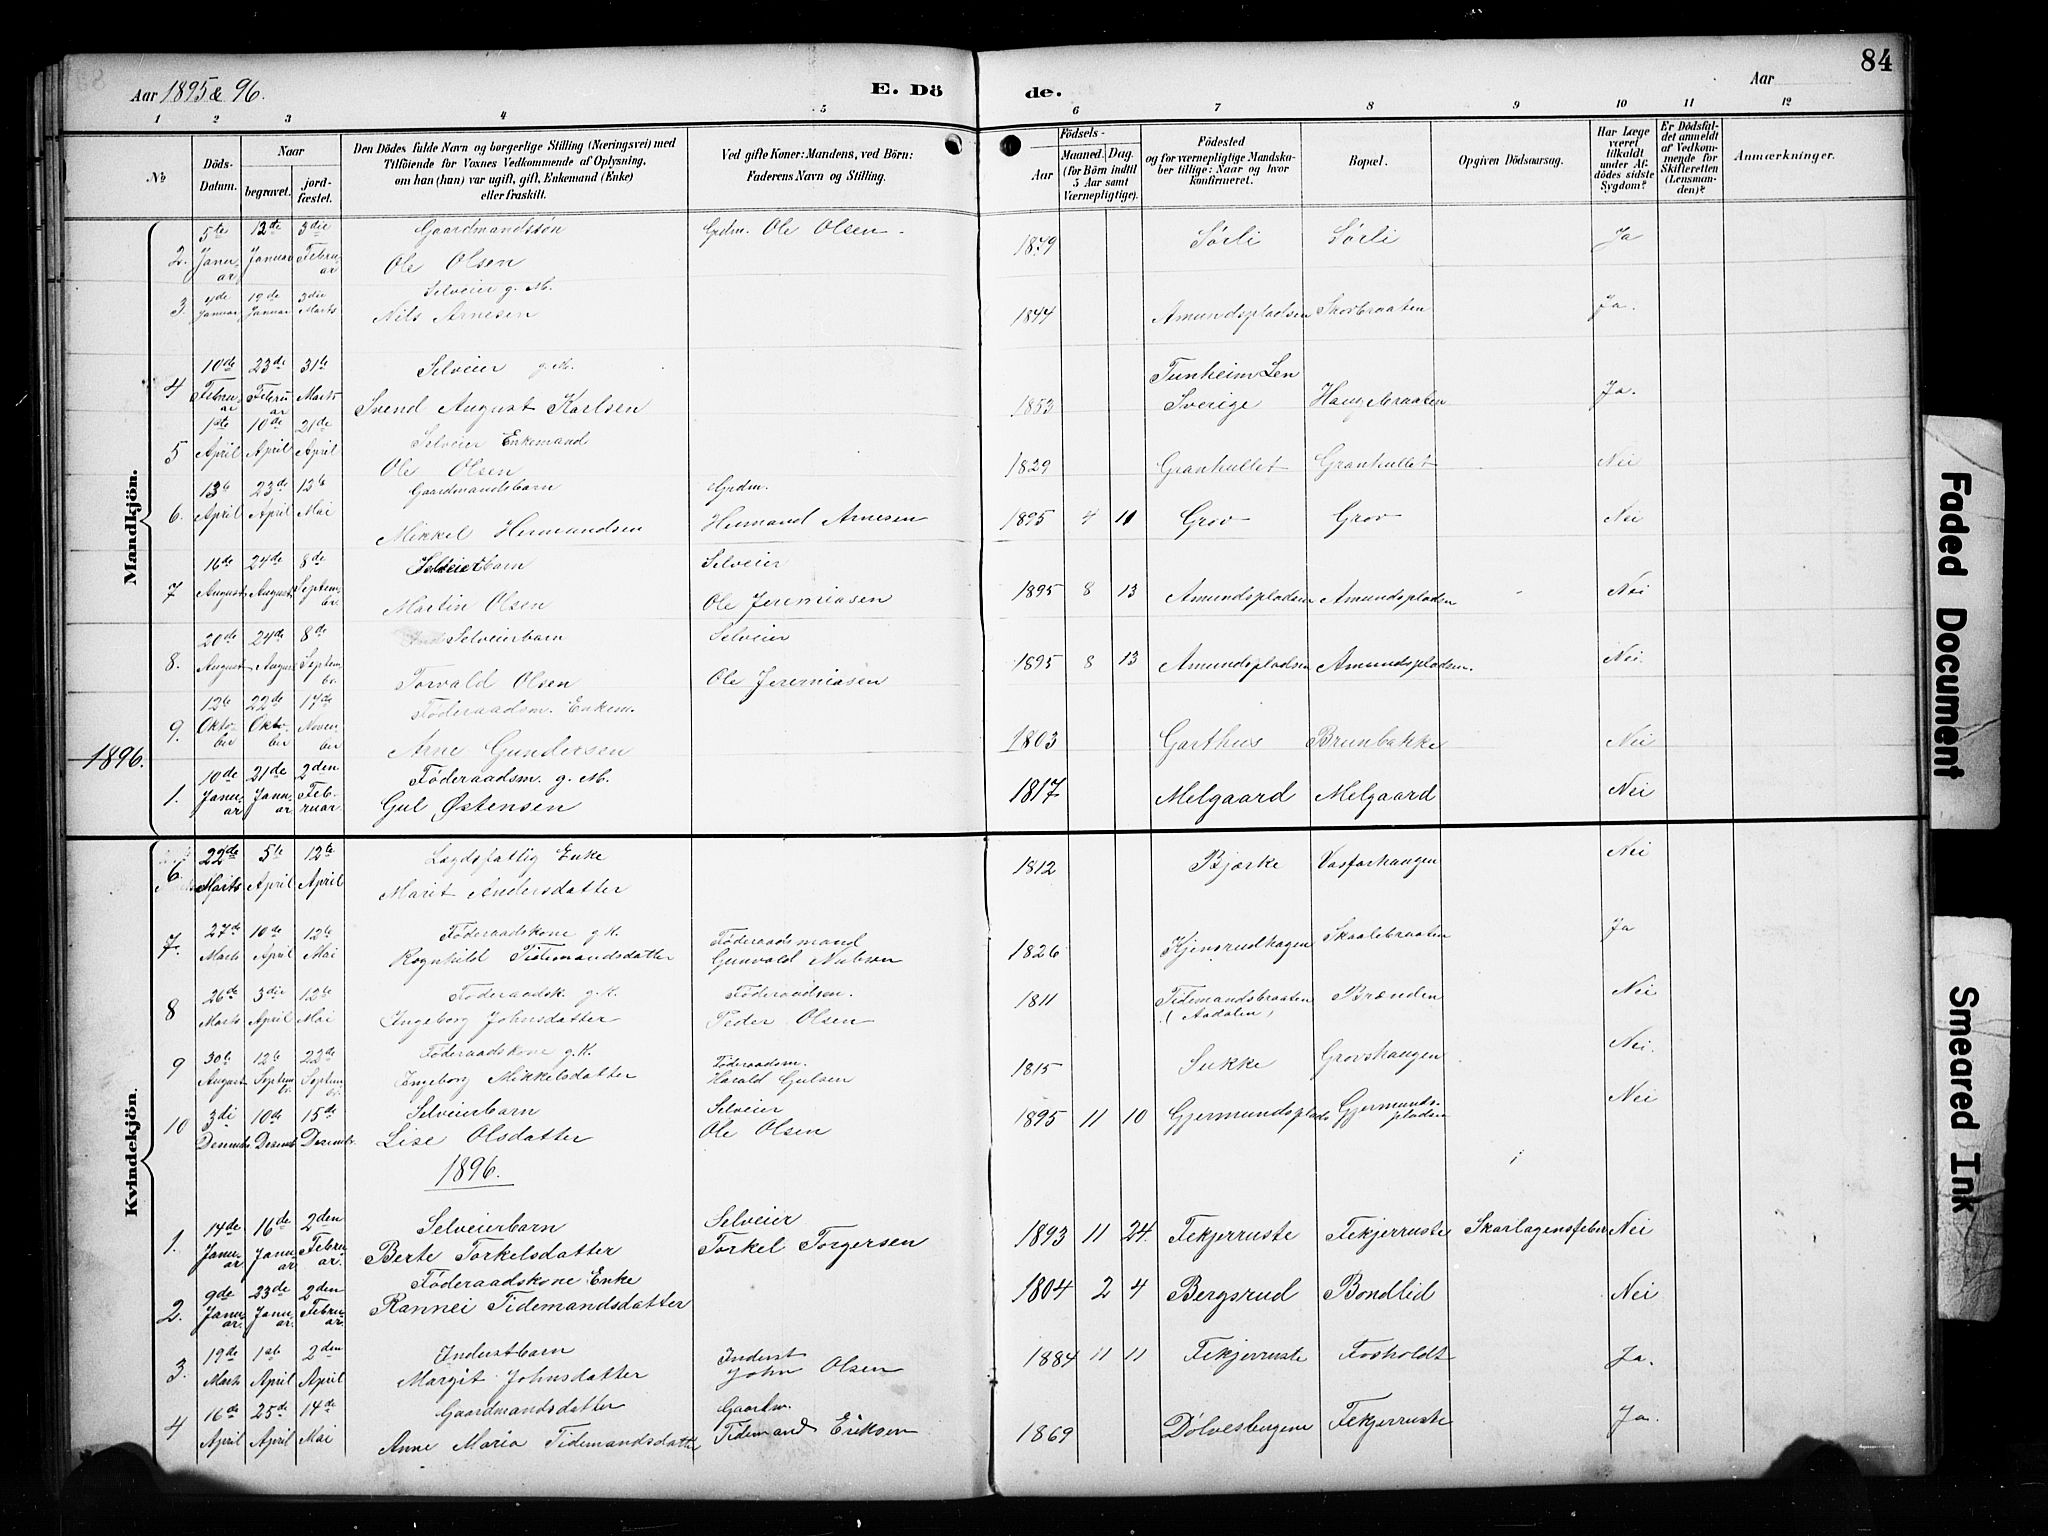 84
Aar 1895 & 96.
E. Dö de.
Aar
1 2 3 4 5 6 7 8 9 10 11 12
No
Döds-Datum.
Naar
begravet.
jord-fæstet.
Den Dödes fulde Navn og borgerlige Stilling (Næringsvei) med
Tilföiende for Voxnes Vedkommende af Oplysning,
om han (hun) var ugift, gift, Enkemand (Enke)
eller fraskilt.
Ved gifte Koner: Mandens, ved Börn:
Faderens Navn og Stilling.
Födsels-
Aar
Maaned. Dag.
(for Börn indtil
5 Aar samt
Værnepligtige).
Födested
og for værnepligtige Mandska-
ber tillige: Naar og hvor
konfirmeret.
Bopæl.
Opgiven Dödsaarsag.
Har Læge
været
tilkaldt
under Af-
dödes sidste
Sygdom?
Er Dödsfal-
det anmeldt
af Vedkom-
mende for
Skifteretten
(Lensman-
den)?
Anmærkninger.
Mandkjön.
2. 5te Januar 12te Januar 3die Februar Gaardmandssön Ole Olsen Grdm. Ole Olsen 1879 Sörli Sörli Ja
3. Januar 12de Januar 3die Marts Selveier g. M. Nils Arnesen 1844 Amundspladsen Ja.
4 10de Februar 23de Februar 31te Marts Selveier g. M. Svend August Karlsen 1853 Sverige Haugebraaten Ja.
5 1ste April 10de April 21de April Selveier Enkemand Ole Olsen 1829 Granhullet Granhullet Nei
6. 13de April 23de April 12te Mai Gaardmandsbarn Mikkel Hermandsen Grdm. Hermand Arnesen 1895 4 11 Grov Grov Nei
7 16de August 24de August 8de September Selveierbarn Martin Olsen Selveier Ole Jeremiasen 1895 8 13 Amundspladsen Amundspladsen Nei
8. 20de August 24de August 8de Septemb. Selveierbarn Torvald Olsen Selveier Ole Jeremiasen 1895 8 13 Amundspladsen Amundspladsen. Nei.
9. 12te Oktober 22de Oktober 17de November Föderaadsm. Enkem. Arne Gundersen 1803 Garthus Brunbakke Nei
1896.
1. 10de Januar 21de Januar 2den Februar Föderaadsm. g. M. Gul Østensen 1817 Melgaard Melgaard Nei
Kvindekjön.
6. 22de Marts 5te April 12te April Lægdsfattig Enke Marit Andersdatter 1812 Bjærke Nei
7. 27de Marts 10de April 12te Mai Föderaadskone g. K. Ragnhild Tidemandsdatter Föderaadsmand Gunvald Nielsen 1826 Kjensrudhagen Skaalebraaten Ja
8 26de Marts 3die April 12te Mai Föderaadsk. g. K. Ingeborg Johnsdatter Peder Olsen 1811 Tidemandsbraaten (Aadalen) Brænden Nei
9 30te August 12te Septemb. 22de Septemb. Föderaadskone g. K. Ingeborg Mikkelsdatter Föderaadsm. Harald Gulsen 1815 Sukke Grovshaugen Nei.
10 3di Desember 10de Desemb. 15de Desember Selveierbarn Lise Olsdatter Selveier Ole Olsen 1895 11 10 Gjermundsplads Gjermundspladsen Nei
1896.
1. 14de Januar 16de Januar 2den Februar Selveierbarn Berte Torkelsdatter Selveier Torkel Torgersen 1893 11 24. Fekjerruste Fekjerruste Skarlagensfeber Nei
2. 9de Januar. 23de Januar. 2den Februar. Föderaadskone Enke Rannei Tidemandsdatter 1804 2 4 Bergsrud Bondlid Nei
3. 19de Marts 1ste April 2den April Inderstbarn Margit Johnsdatter Inderst John Olsen 1884 11 11 Fekjerruste Fosholdt Ja.
4 16de April 25de April 14de Mai Gaardmandsdatter Anne Maria Tidemandsdatter Gaardm. Tidemand Eriksen 1869 Dölvesbergene Fekjerruste Ja.
Faded Document
Smeared Ink